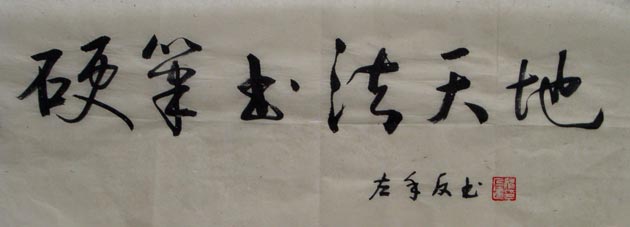 硬笔书法天地
左手反书